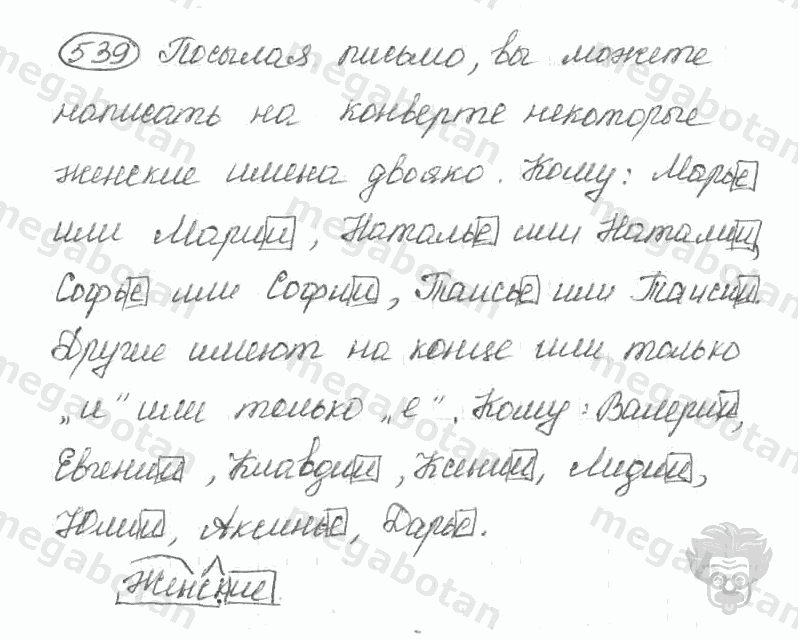 539 Посылая письмо, вы можете
написать на конверте некоторые
женские имена двояко. Кому: Марье
или Марии, Наталье или Наталии,
Софье или Софии, Таисье или Таисии.
Другие имеют на конце или только
„и" или только „е". Кому: Валерии,
Евгении, Клавдии, Ксении, Лидии,
Юлии, Аксинье, Дарье.
Женские
megabotan